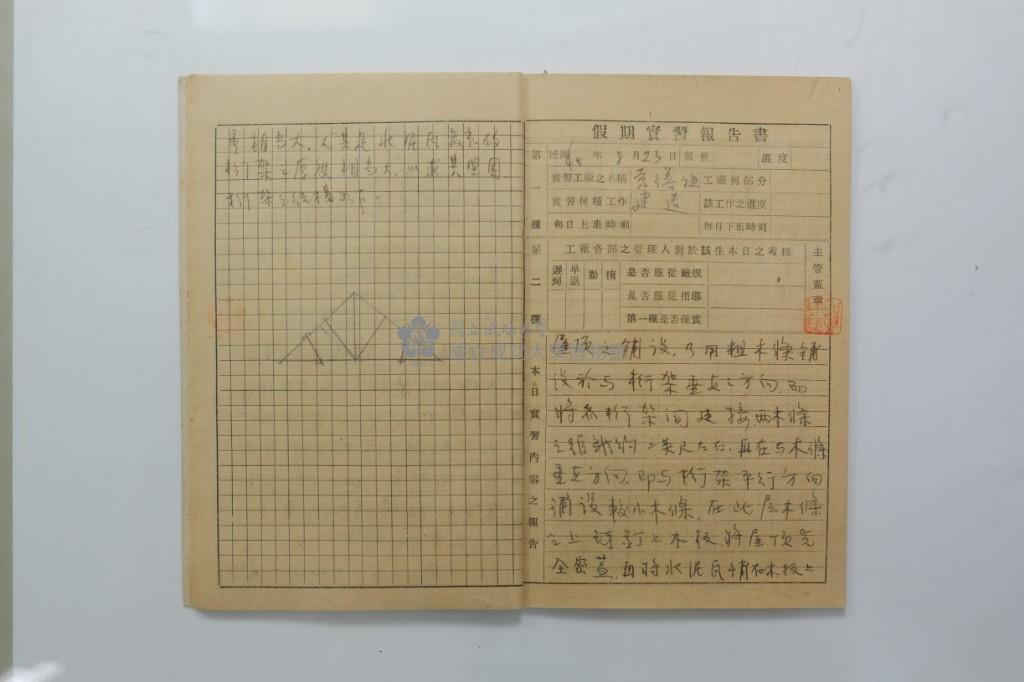 重相當大,尤其是水泥瓦最重,故
桁架之度相當大,以求其堅固
桁架之結構如下:
假期實習報告書
第一欄
民國 年 8 月 23 日 氣候 溫度
實習工廠之名稱 工廠何部分
實習何種工作 建造 該工作之進度
每日上班時刻 每日下班時刻
第二欄
工廠各部之管理人對於該生本日之考核
遲到 早退 勤 惰
是否服從廠規
是否服從指導
第一欄是否確實
主管蓋章
國立成功大學
國立成功大學博物館
本日實習內容之報告
屋頂之鋪設,乃用粗木條鋪
設於與桁架垂直之方向,而
將各桁架間連接,兩木條
之距離約二英尺左右,再在與木條
垂直方向,即與桁架平行方向
鋪設較小木條,在此層木條
之上再釘上木板,將屋頂完
全密蓋,再將水泥瓦鋪在木板上